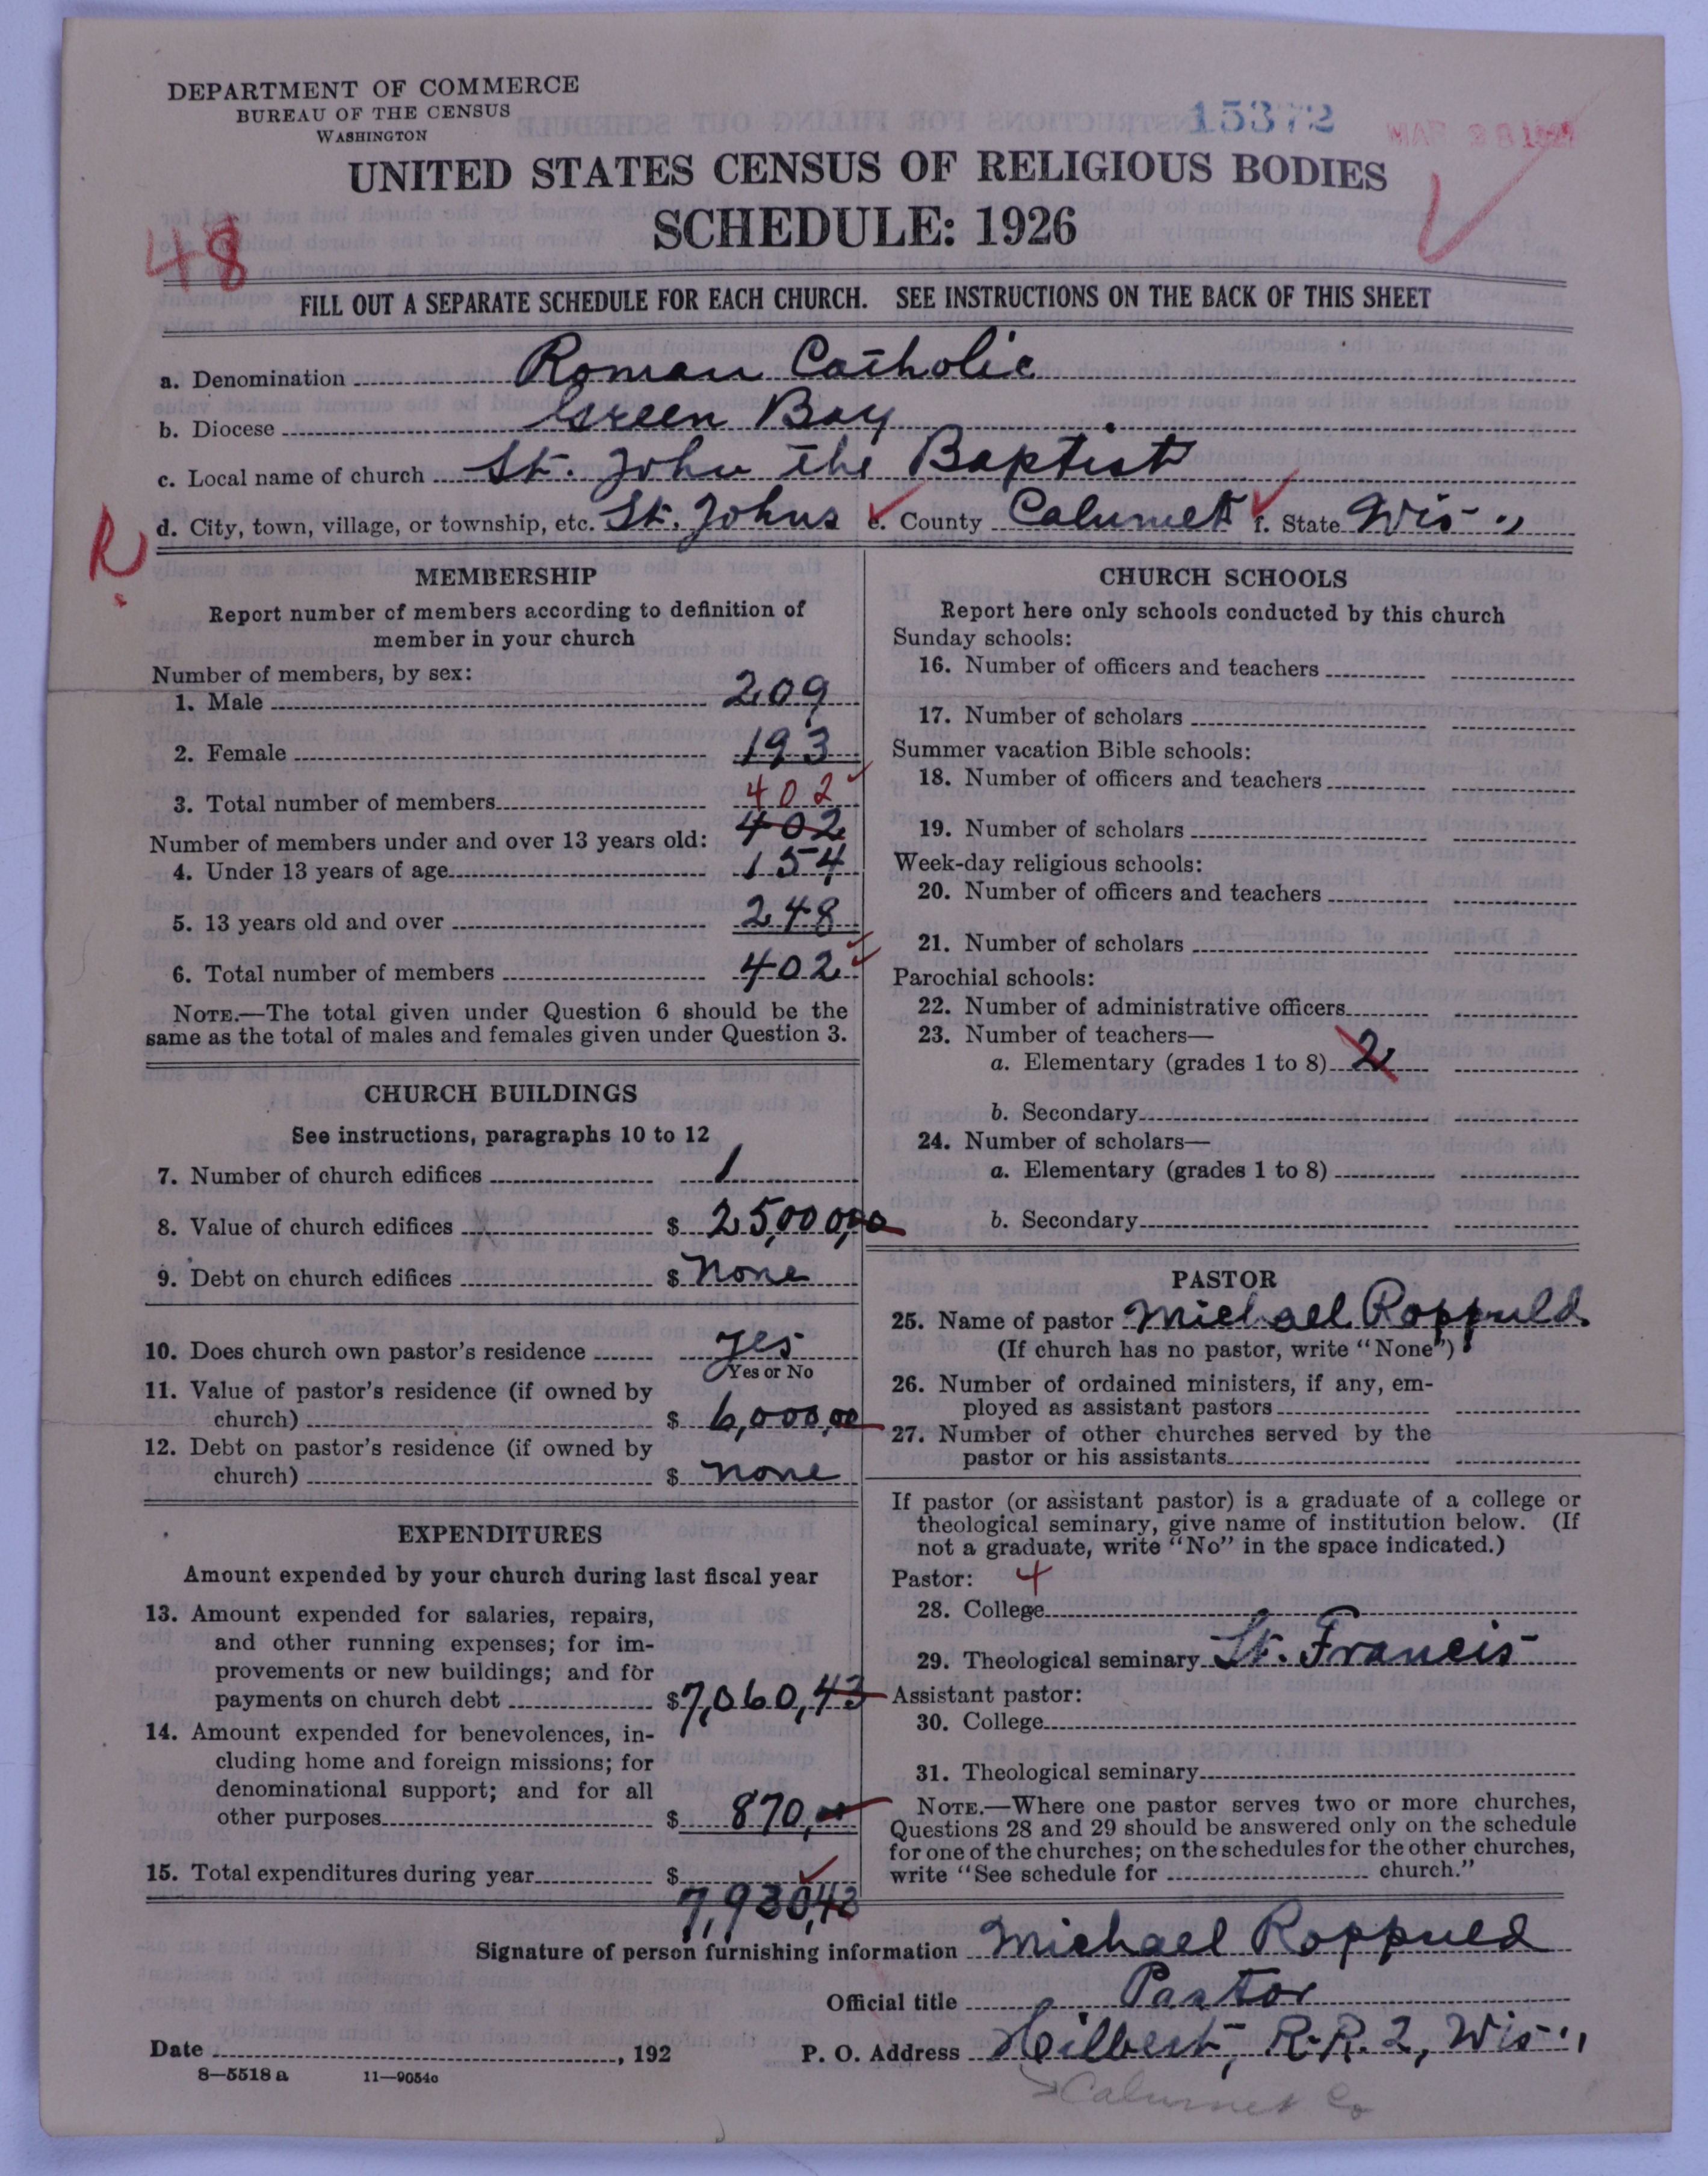 DEPARTMENT OF COMMERCE
BUREAU OF THE CENSUS
WASHINGTON
15372
UNITED STATES CENSUS OF RELIGIOUS BODIES
SCHEDULE: 1926
48
FILL OUT A SEPARATE SCHEDULE FOR EACH CHURCH. SEE INSTRUCTIONS ON THE BACK OF THIS SHEET
a. Denomination Roman Catholic
b. Diocese Green Bay
c. Local name of church St. John the Baptist
R. d. City, town, village, or township, etc. St. Johns e. County Calumet f. State Wis.,
MEMBERSHIP
Report number of members according to definition of
member in your church
Number of members, by sex:
1. Male 209
2. Female 193
3. Total number of members 402
402
Number of members under and over 13 years old:
4. Under 13 years of age 154
5. 13 years old and over 248
6. Total number of members 402
NOTE.—The total given under Question 6 should be the
same as the total of males and females given under Question 3.
CHURCH BUILDINGS
See instructions, paragraphs 10 to 12
7. Number of church edifices 1
8. Value of church edifices $ 25,000,00
9. Debt on church edifices $ none
10. Does church own pastor's residence yes
Yes or No
11. Value of pastor's residence (if owned by
church) $ 6,000,00
12. Debt on pastor's residence (if owned by
church) $ none
EXPENDITURES
Amount expended by your church during last fiscal year
13. Amount expended for salaries, repairs,
and other running expenses; for im-
provements or new buildings; and for
payments on church debt $7,060,43
14. Amount expended for benevolences, in-
cluding home and foreign missions; for
denominational support; and for all
other purposes $ 870,00
15. Total expenditures during year $
7,930,43
CHURCH SCHOOLS
Report here only schools conducted by this church
Sunday schools:
16. Number of officers and teachers
17. Number of scholars
Summer vacation Bible schools:
18. Number of officers and teachers
19. Number of scholars
Week-day religious schools:
20. Number of officers and teachers
21. Number of scholars
Parochial schools:
22. Number of administrative officers
23. Number of teachers—
a. Elementary (grades 1 to 8) 2
b. Secondary
24. Number of scholars—
a. Elementary (grades 1 to 8)
b. Secondary
PASTOR
25. Name of pastor Michael Roppuld
(If church has no pastor, write "None")
26. Number of ordained ministers, if any, em-
ployed as assistant pastors
27. Number of other churches served by the
pastor or his assistants
If pastor (or assistant pastor) is a graduate of a college or
theological seminary, give name of institution below. (If
not a graduate, write "No" in the space indicated.)
Pastor: 4
28. College
29. Theological seminary St. Francis
Assistant pastor:
30. College
31. Theological seminary
NOTE.—Where one pastor serves two or more churches,
Questions 28 and 29 should be answered only on the schedule
for one of the churches; on the schedules for the other churches,
write "See schedule for church."
Signature of person furnishing information Michael Roppuld
Official title Pastor
Date , 192 P. O. Address Hilbert, R.R. 2, Wis.,
8—5518 a 11—9054c
Calumet Co